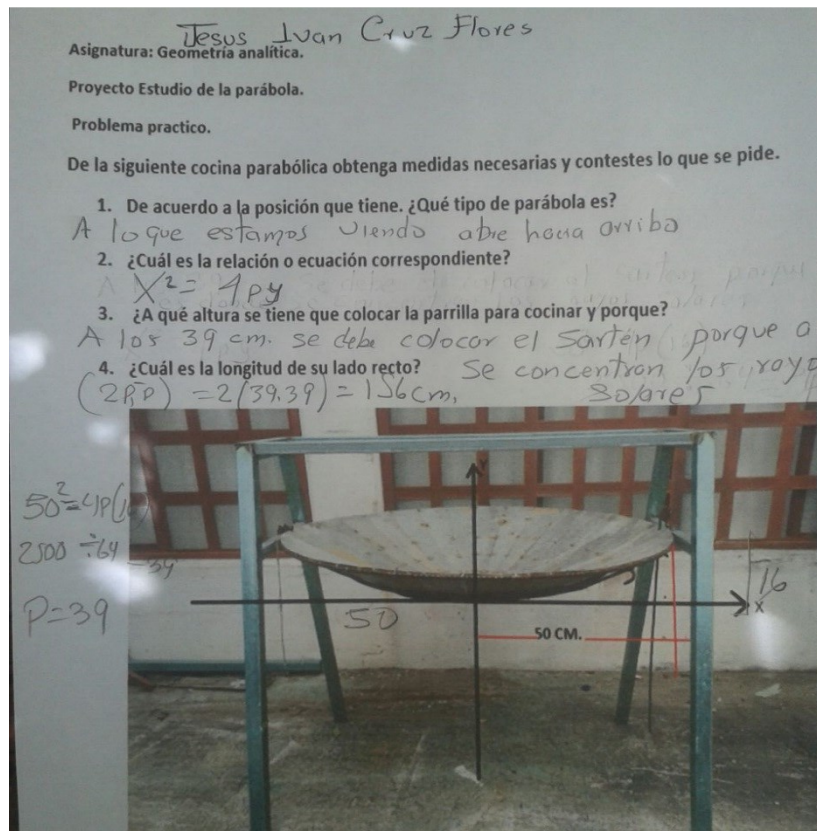 Jesus Ivan Cruz Flores
Asignatura: Geometría analítica.
Proyecto Estudio de la parábola.
Problema practico.
De la siguiente cocina parabólica obtenga medidas necesarias y contestes lo que se pide.
1. De acuerdo a la posición que tiene. ¿Qué tipo de parábola es?
A lo que estamos viendo abre hacia arriba
2. ¿Cuál es la relación o ecuación correspondiente?
X²= 4py
3. ¿A qué altura se tiene que colocar la parrilla para cocinar y porque?
A los 39 cm. se debe colocar el Sartén porque a
4. ¿Cuál es la longitud de su lado recto?
se concentran los rayo
solares
= 2(39.39) = 156cm,
50²=4P(16)
2500 ÷64
=39
P=39
50
16
X
50 CM.